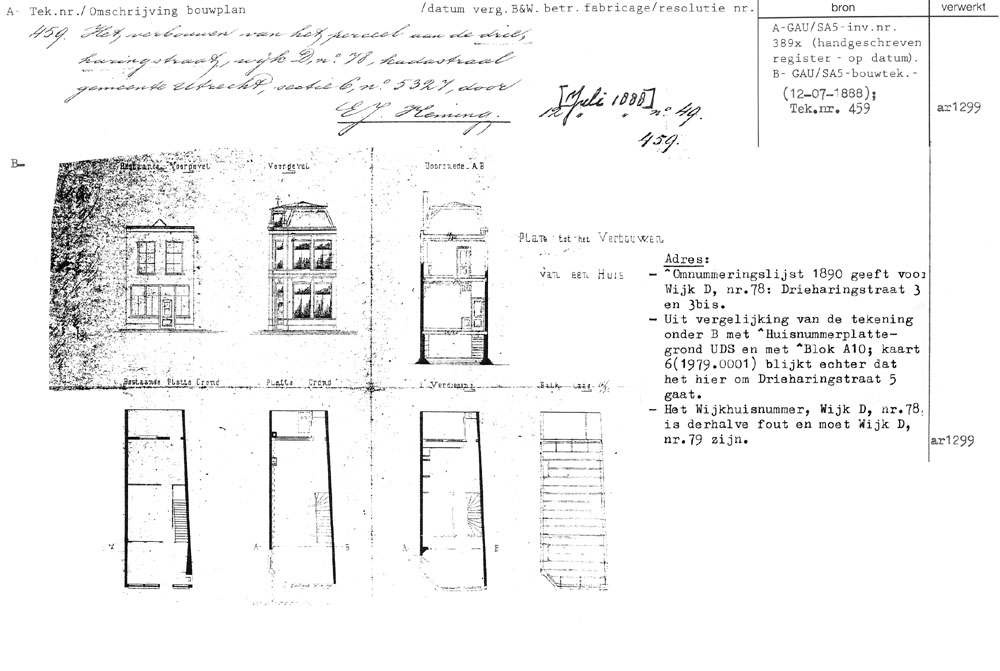 A- Tek.nr./ Omschrijving bouwplan /datum verg.B&W. betr. fabricage/resolutie nr. bron verwerkt
459. Het verbouwen van het perceel aan de drie,
haringstraat, wijk D, no. 78, kadastraal
gemeente Utrecht, sectie C, no. 5327, door
E.J. Heming.
[Juli 1888]
12 " " no. 49.
459.
A-GAU/SA5-inv.nr.
389x (handgeschreven
register - op datum).
B- GAU/SA5-bouwtek.-
(12-07-1888);
Tek.nr. 459
ar1299
B-
Bestaande Voorgevel Voorgevel Doorsnede. A.B
Plan tot het Verbouwen
van een Huis
Adres:
- ^Omnummeringslijst 1890 geeft voor
Wijk D, nr.78: Drieharingstraat 3
en 3bis.
- Uit vergelijking van de tekening
onder B met ^Huisnummerplatte-
grond UDS en met ^Blok A10; kaart
6(1979.0001) blijkt echter dat
het hier om Drieharingstraat 5
gaat.
- Het Wijkhuisnummer, Wijk D, nr.78,
is derhalve fout en moet Wijk D,
nr.79 zijn.
ar1299
Bestaande Platte Grond Platte Grond 1e Verdieping Balk laag
A B A B